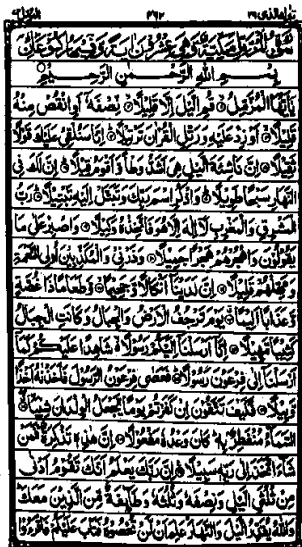 سورة المزمل مكية وهى عشرون اية وفيها ركوعان
بسم الله الرحمن الرحيم
يايها المزمل قم اليل الا قليلا نصفه او انقص منه
قليلا او زد عليه ورتل القران ترتيلا انا سنلقى عليك قولا
ثقيلا ان ناشئة اليل هى اشد وطا واقوم قيلا ان لك فى
النهار سبحا طويلا واذكر اسم ربك وتبتل اليه تبتيلا رب
المشرق والمغرب لا اله الا هو فاتخذه وكيلا واصبر على ما
يقولون واهجرهم هجرا جميلا وذرنى والمكذبين اولى النعمة
ومهلهم قليلا ان لدينا انكالا وجحيما وطعاما ذا غصة
وعذابا اليما يوم ترجف الارض والجبال وكانت الجبال
كثيبا مهيلا انا ارسلنا اليكم رسولا شاهدا عليكم كما
ارسلنا الى فرعون رسولا فعصى فرعون الرسول فاخذنه اخذا
وبيلا فكيف تتقون ان كفرتم يوما يجعل الولدان شيبا
السماء منفطر به كان وعده مفعولا ان هذه تذكرة فمن
شاء اتخذ الى ربه سبيلا ان ربك يعلم انك تقوم ادنى
من ثلثى اليل ونصفه وثلثه وطائفة من الذين معك
والله يقدر اليل والنهار علم ان لن تحصوه فتاب عليكم فاقرءوا